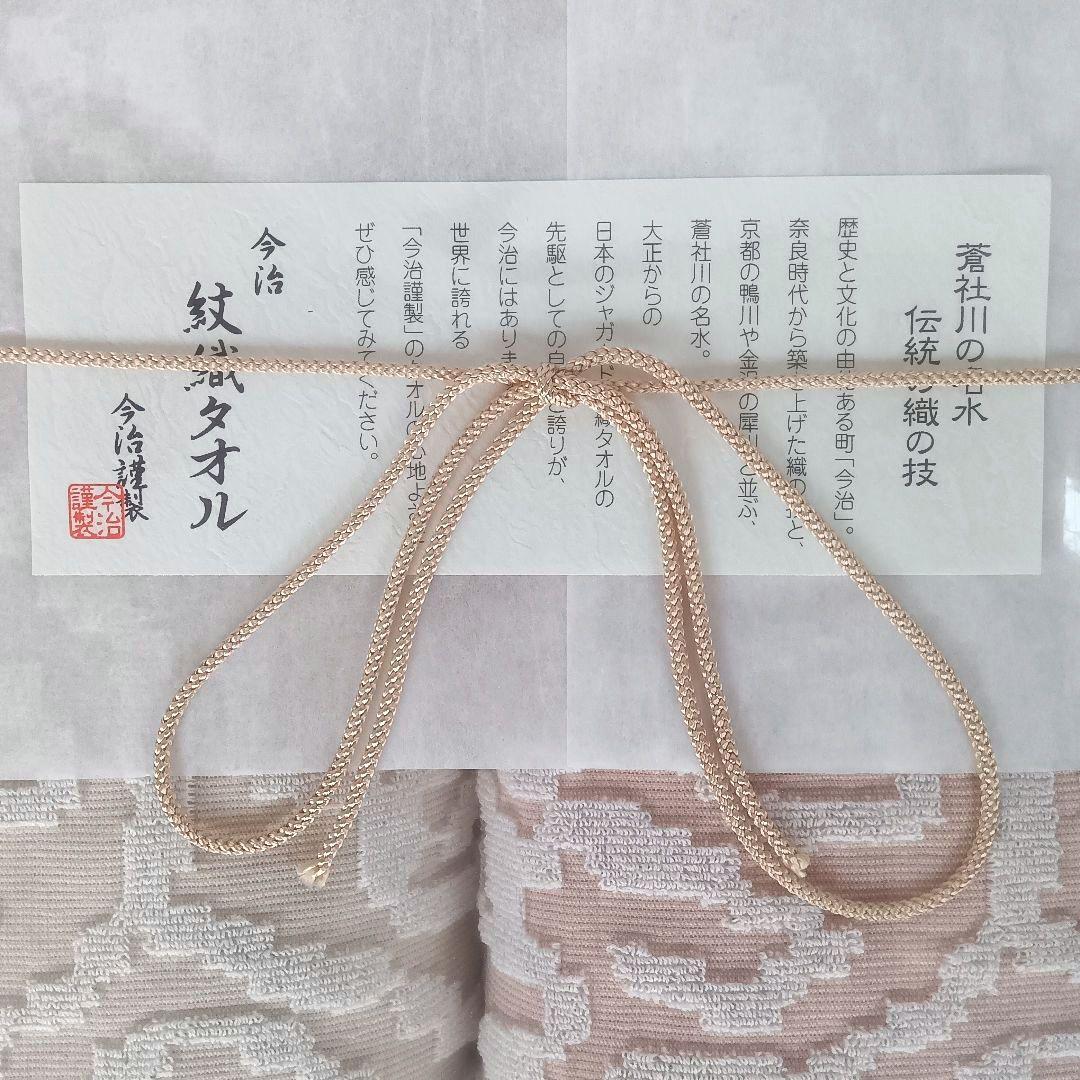 蒼社川の名水
伝統の織の技
歴史と文化の由ある町「今治」。
奈良時代から築上げた織のと、
京都の鴨川や金沢の犀川と並ぶ、
蒼社川の名水。
大正からの
日本のジャガード織タオルの
先駆としての自と誇りが、
今治にはありま
世界に誇れる
「今治謹製」のタオルの心地よ
ぜひ感じてみてください。
今治
紋織タオル
今治謹製
今治
謹製